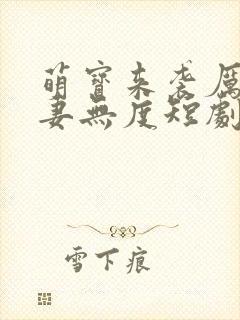 萌寶來袭厲
妻無度短劇
雪下痕